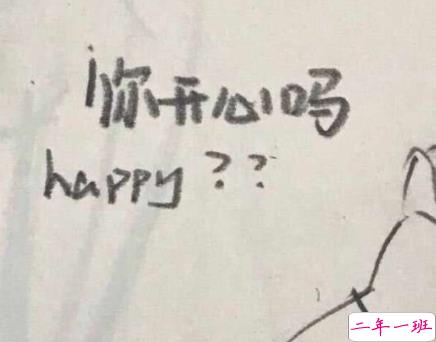 你开心吗
happy??
二年一班